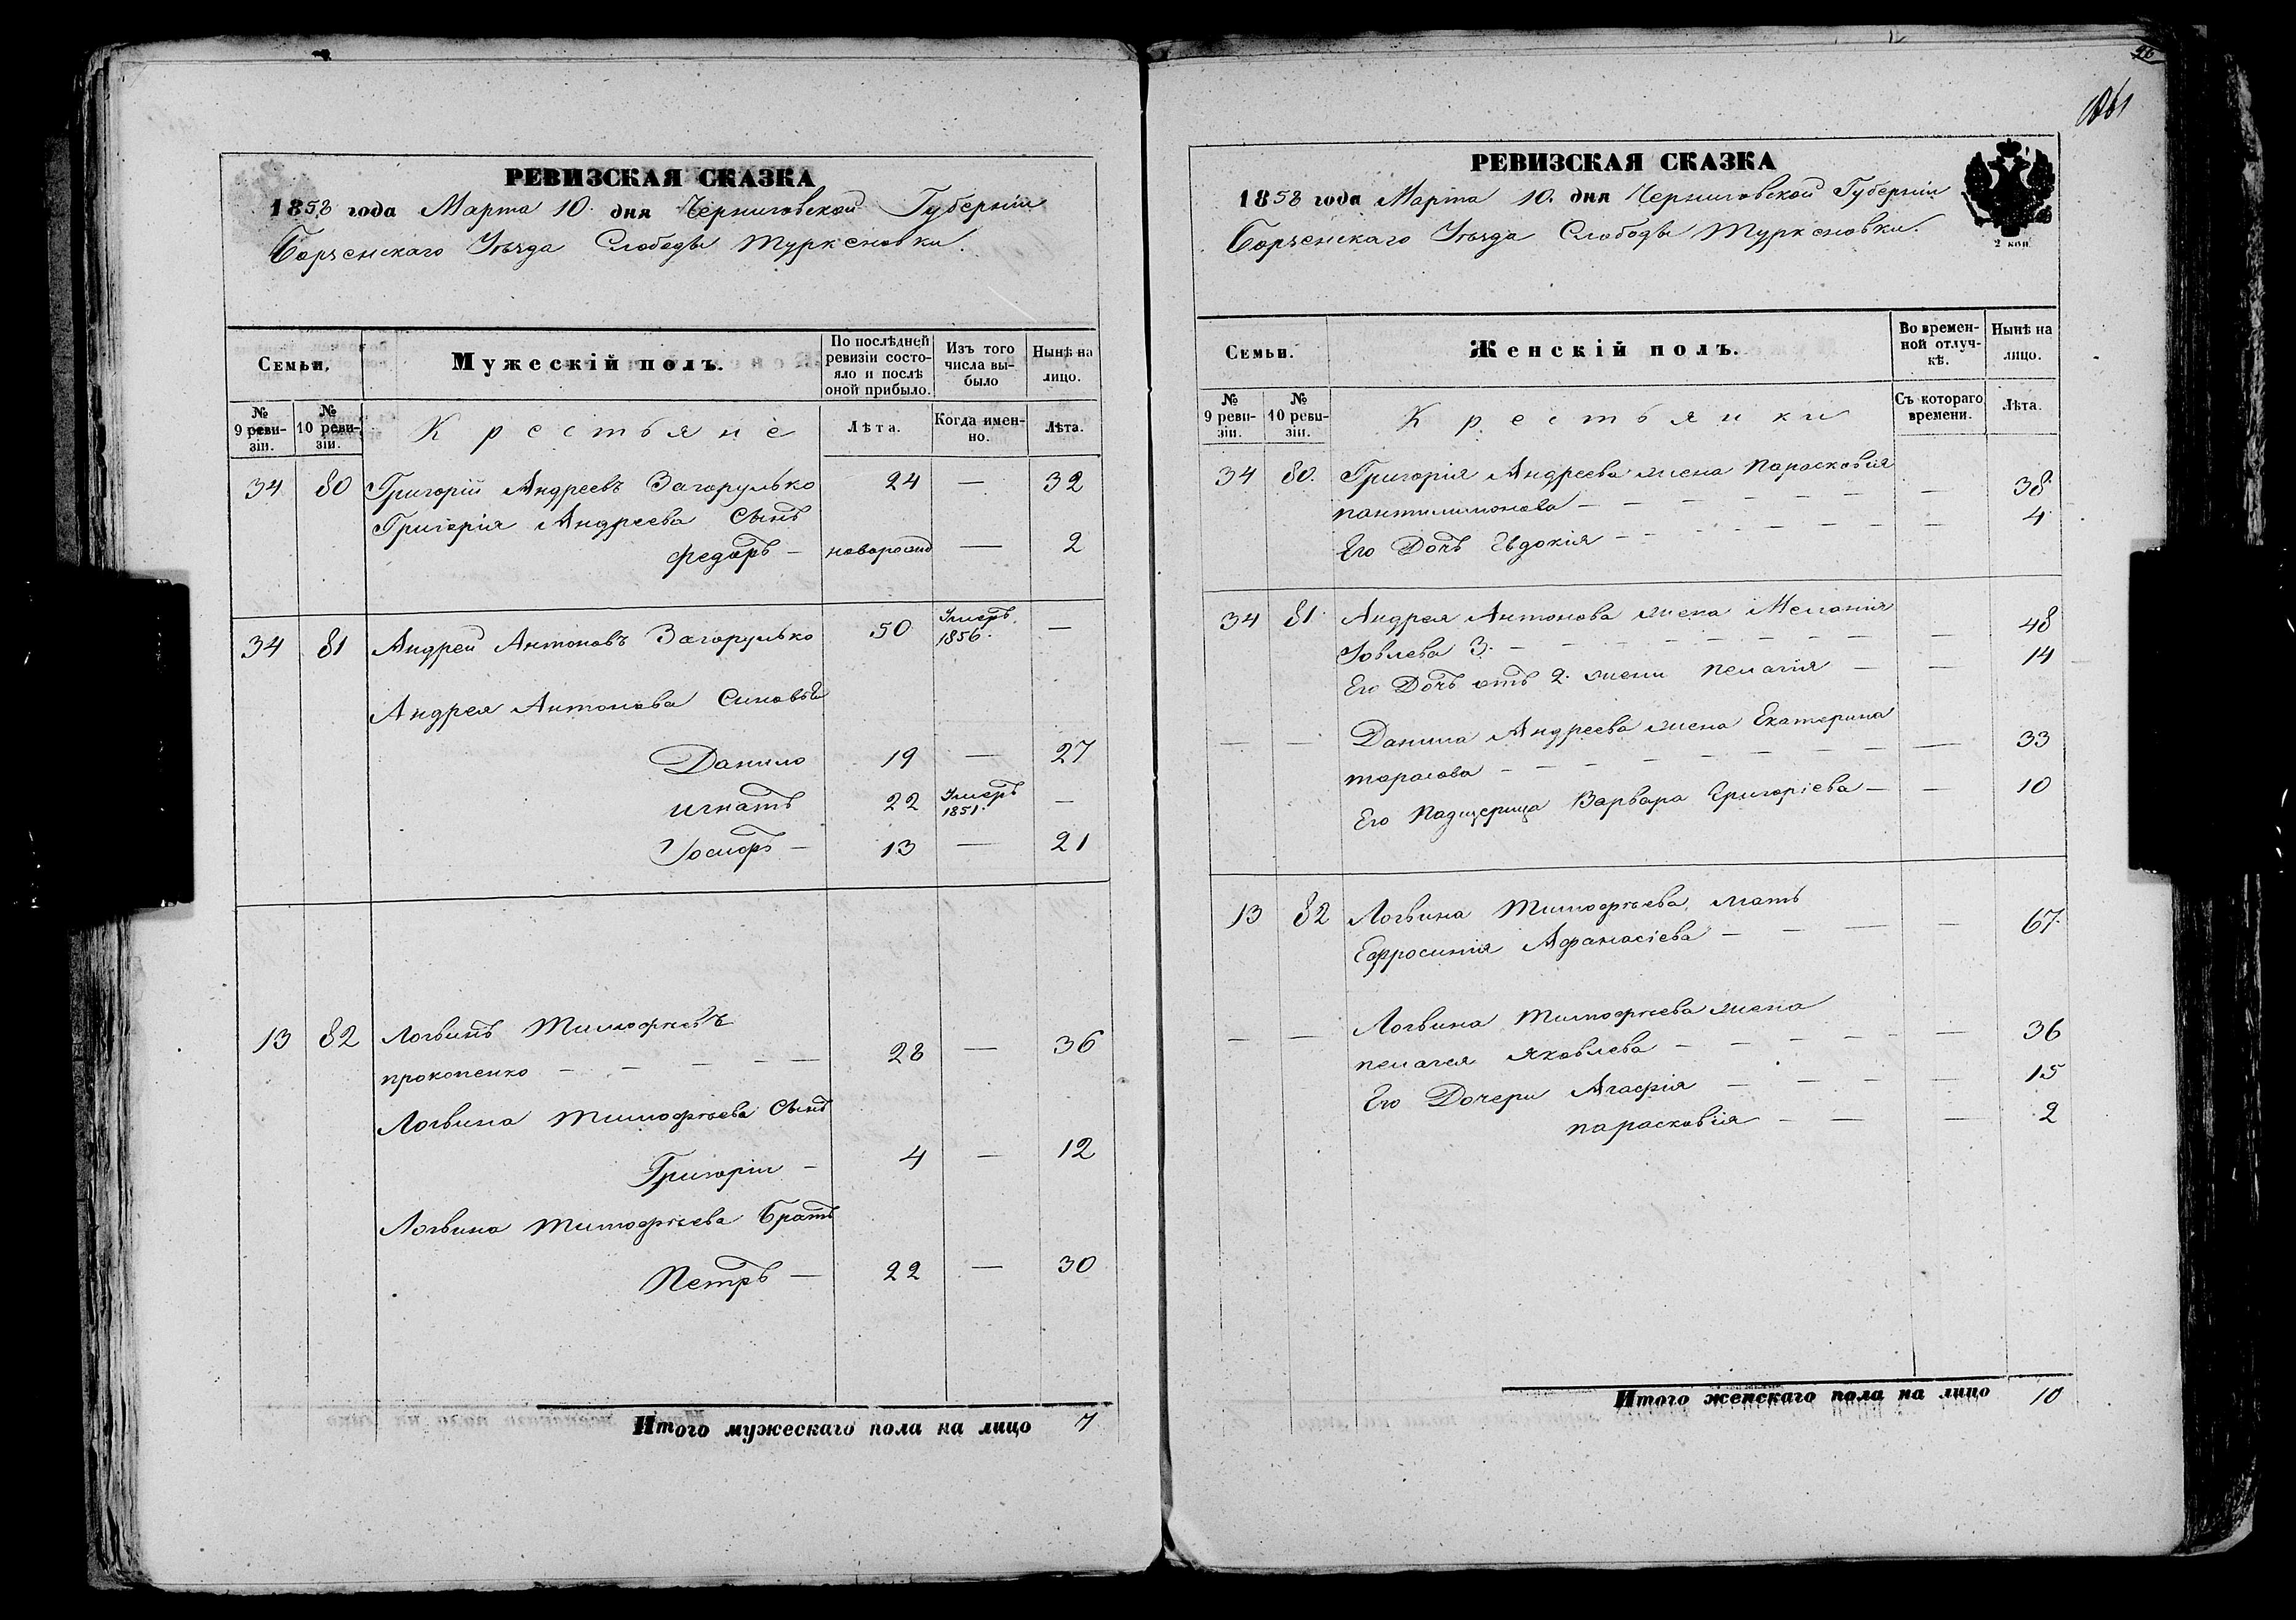 РЕВИЗСКАЯ СКАЗКА
1858 года Марта 10. дня Черниговской Губерніи
Борзенскаго Уѣзда Слободы Туркеновки.
Семьи.
Мужескій полъ.
По послѣдней ревизіи состояло и послѣ оной прибыло.
Изъ того числа выбыло
Нынѣ на лицо.
№ 9 ревизіи.
№ 10 ревизіи.
Крестьяне
Лѣта.
Когда именно.
Лѣта.
34 80 Григорій Андреевъ Загорулько 24 — 32
Григорія Андреева Сынъ
федоръ — новорожд — 2
34 81 Андрей Антоновъ Загорулько 50 Умеръ 1856. —
Андрея Антонова Синовья
Данило 19 — 27
игнатъ 22 Умеръ 1851. —
13 — 21
13 82 Логвинъ Тимофѣевъ
прокопенко — — — — 28 — 36
Логвина Тимофѣева Сынъ
Григорій — 4 — 12
Логвина Тимофѣева Братъ
Петръ — 22 — 30
Итого мужескаго пола на лицо 7
26
РЕВИЗСКАЯ СКАЗКА
1858 года Марта 10. дня Черниговской Губерніи
Борзенскаго Уѣзда Слободы Туркеновки.
2 коп.
Семьи.
Женскій полъ.
Во временной отлучкѣ.
Нынѣ на лицо.
№ 9 ревизіи.
№ 10 ревизіи.
Крестьянки
Съ котораго времени.
Лѣта.
34 80. Григорія Андреева жена Парасковія
пантилимонова — — — — — — — 38
Его Дочь Евдокія — — — — — — — 4
34 81. Андрея Антонова жена Меланія
Іовлева 3. — — — — — — — 48
Его Дочь отъ 2. жени пелагія — — 14
— — Данила Андреева жена Екатерина
тарасова — — — — — — — 33
Его Падщерица Варвара Григоріева — — 10
13 82 Логвина Тимофѣева мать
Ефросинія Афанасіева — — — — 67.
— — Логвина Тимофѣева жена
пелагея Яковлева — — — — — — 36
Его Дочери Агафія — — — — — 15
парасковія — — — 2
Итого женскаго пола на лицо 10